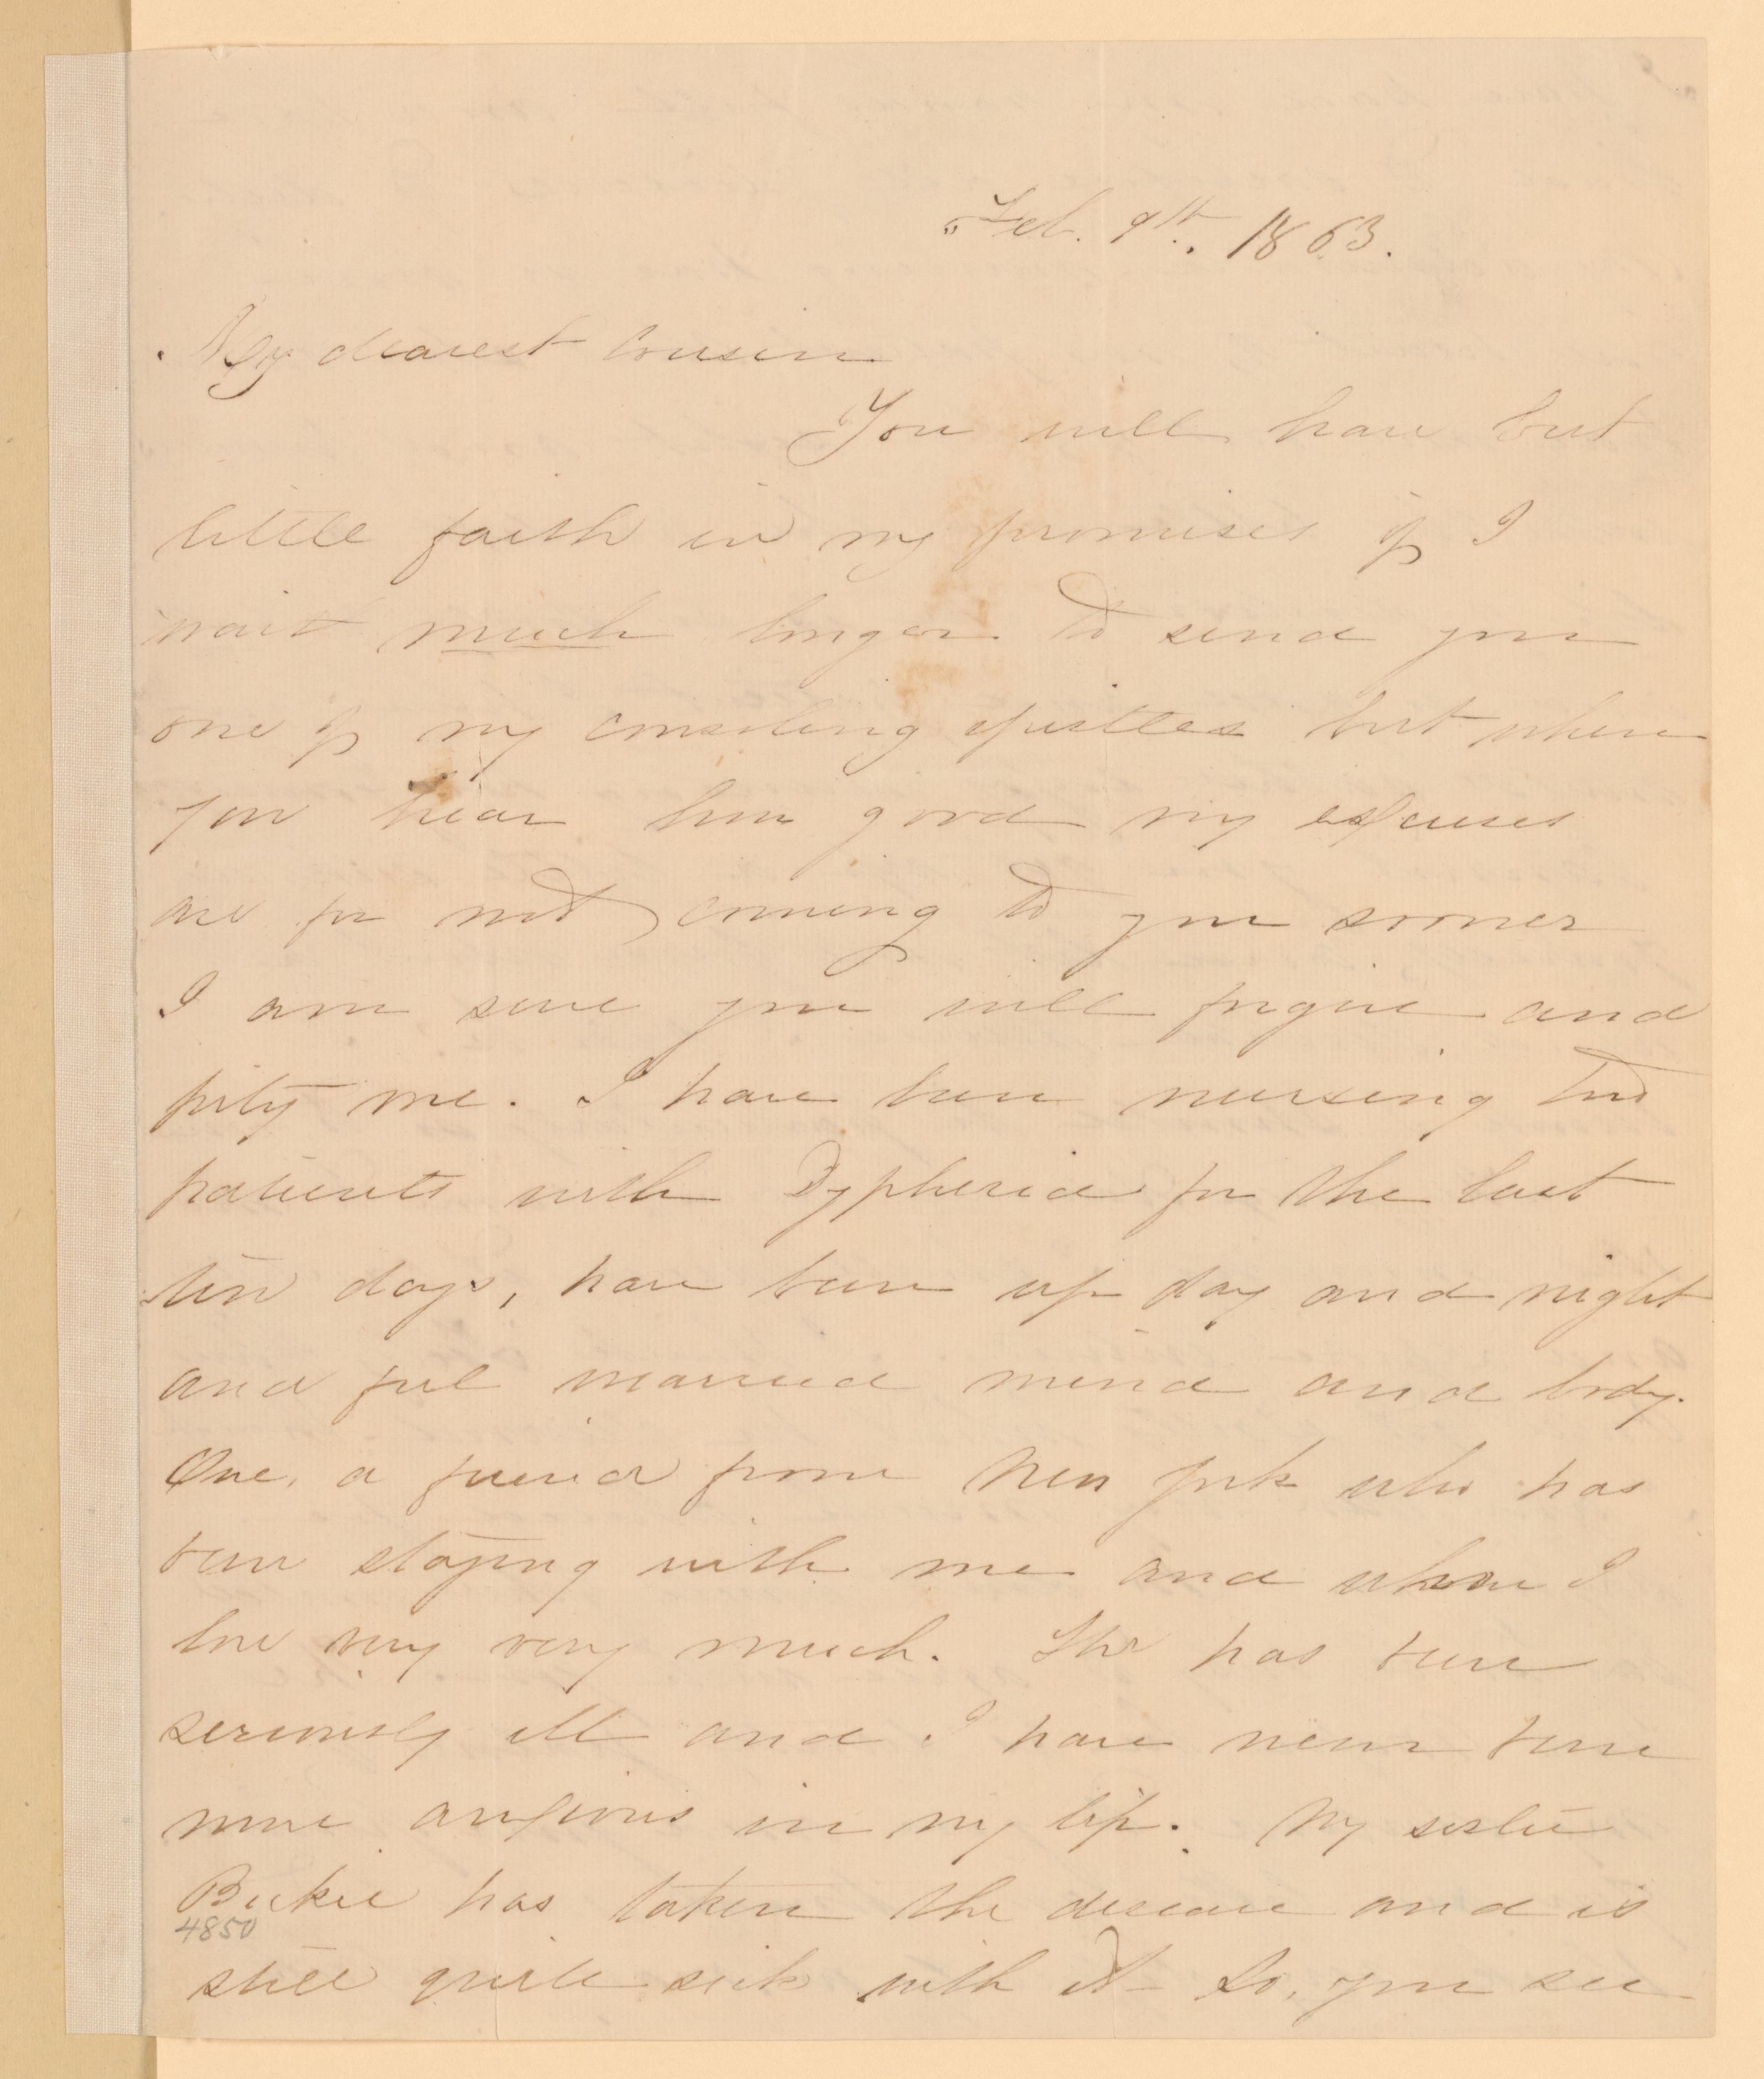 Feb. 9th. 1863.
My dearest Cousin
You will have but
little faith in my promises if I
wait much longer to send you
one of my consoling epistles but when
you hear how good my excuses
are for not coming to you sooner
I am sure you will forgive and
pity me. I have been nursing two
patients with Dyptheria for the last
ten days, have been up day and night
and feel wearied mind and body.
One, a friend from New York who has
been staying with me and whom I
love very very much. She has been
seriously ill and I have never been
more anxious in my life. My sister
Beckie has taken the disease and is
4850
still quite sick with it - So, you see